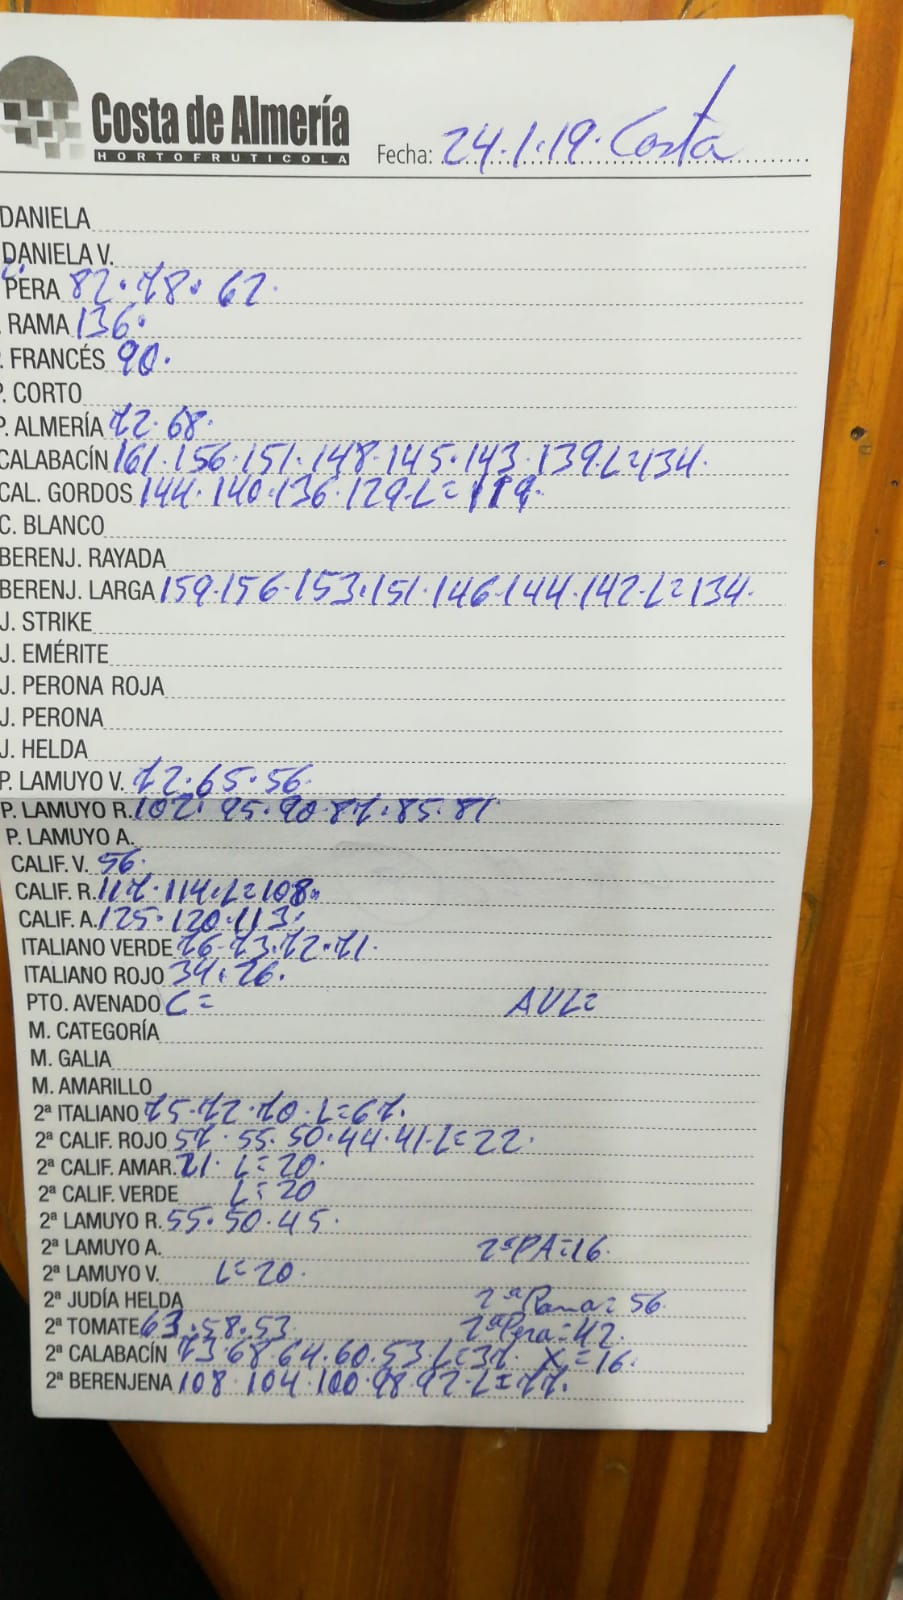 Costa de Almería
HORTOFRUTICOLA
Fecha: 24.1.19. Costa
DANIELA
DANIELA V.
PERA 82. 78. 62.
RAMA 136.
FRANCÉS 90.
P. CORTO
P. ALMERÍA 72. 68.
CALABACÍN 161. 156. 151. 148. 145. 143. 139. L=134.
CAL. GORDOS 144. 140. 136. 129. L= 119.
C. BLANCO
BERENJ. RAYADA
BERENJ. LARGA 159. 156. 153. 151. 146. 144. 142. L=134.
J. STRIKE
J. EMÉRITE
J. PERONA ROJA
J. PERONA
J. HELDA
P. LAMUYO V. 72. 65. 56.
P. LAMUYO R. 102. 95. 90. 87. 85. 81
P. LAMUYO A.
CALIF. V. 56.
CALIF. R. 117. 114. L=108.
CALIF. A. 125. 120. 113.
ITALIANO VERDE 76. 73. 72. 71.
ITALIANO ROJO 34. 26.
PTO. AVENADO C= AVL=
M. CATEGORÍA
M. GALIA
M. AMARILLO
2ª ITALIANO 75. 72. 70. L=67.
2ª CALIF. ROJO 57. 55. 50. 44. 41. L=22.
2ª CALIF. AMAR. 21. L=20.
2ª CALIF. VERDE L=20
2ª LAMUYO R. 55. 50. 45.
2ª LAMUYO A. 2ªPA=16.
2ª LAMUYO V. L=20.
2ª JUDÍA HELDA 2ªRama= 56.
2ª TOMATE 63. 58. 53. 2ªPera=42.
2ª CALABACÍN 73. 68. 64. 60. 53. L=37 X=16.
2ª BERENJENA 108. 104. 100. 98. 92. L=77.